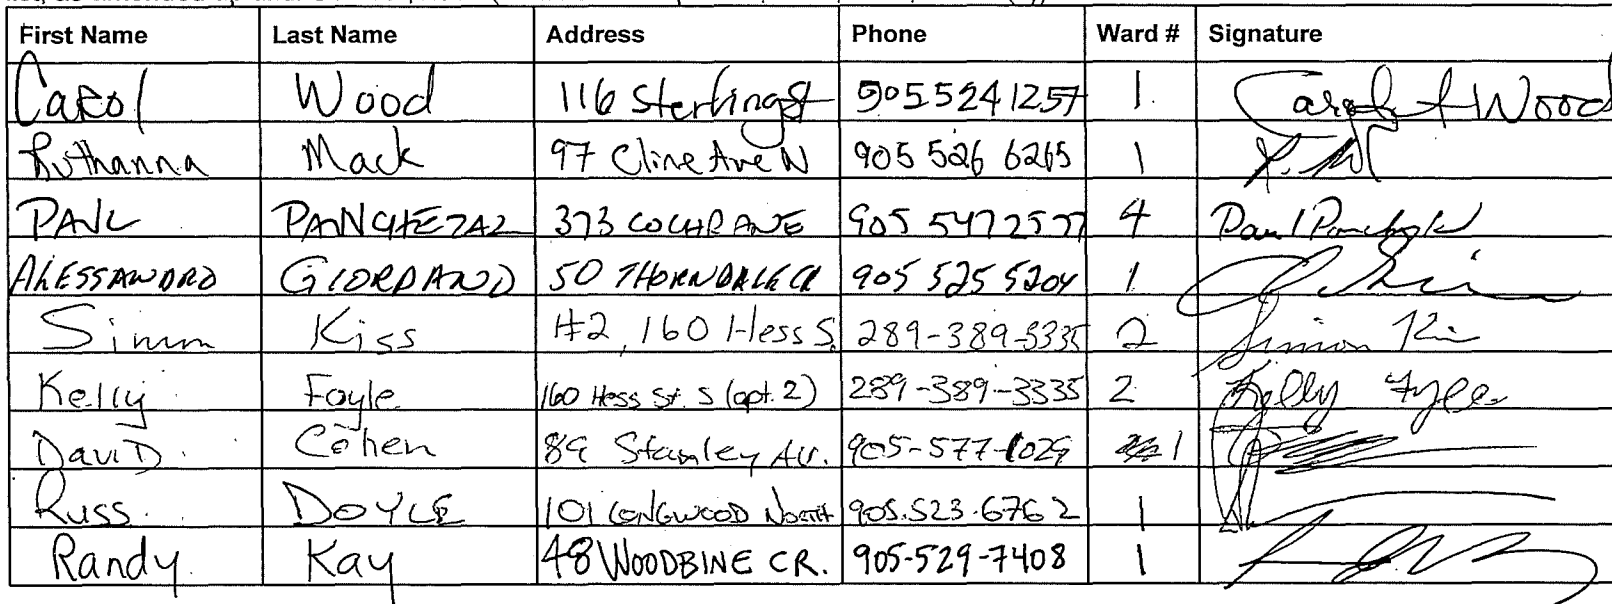 First Name Last Name Address Phone Ward # Signature
Carol Wood 116 Sterling St 905 524 1257 1 Carol Wood
Ruthanna Mack 97 Cline Ave N 905 526 6265 1
PAUL 373 COCHRANE 905 547 2577 4 Paul
ALESSANDRO GIORDANO 50 THORNDALE CR 905 525 5204 1
Simon Kiss #2, 160 Hess S. 289-389-3335 2 Simon Kiss
Kelly Foyle 160 Hess St. S (apt. 2) 289-389-3335 2 Kelly
DaviD Cohen 89 Stanley Av. 905-577-1029 1
Russ DOYLE 101 LONGWOOD NORTH 905.523.6762 1
Randy Kay 48 WOODBINE CR. 905-529-7408 1